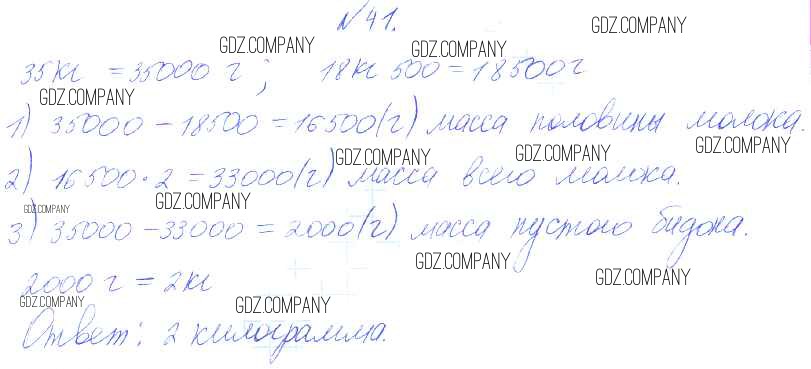 №41.
GDZ.COMPANY
GDZ.COMPANY GDZ.COMPANY
35кг = 35000 г; 18кг 500 = 18500г
GDZ.COMPANY
1) 35000 - 18500 = 16500(г) масса половины молока.
GDZ.COMPANY GDZ.COMPANY GDZ.COMPANY
2) 16500·2 = 33000(г) масса всего молока.
GDZ.COMPANY
GDZ.COMPANY
3) 35000 - 33000 = 2000(г) масса пустого бидона.
GDZ.COMPANY
GDZ.COMPANY
2000 г = 2кг
GDZ.COMPANY GDZ.COMPANY
Ответ: 2 килограмма.